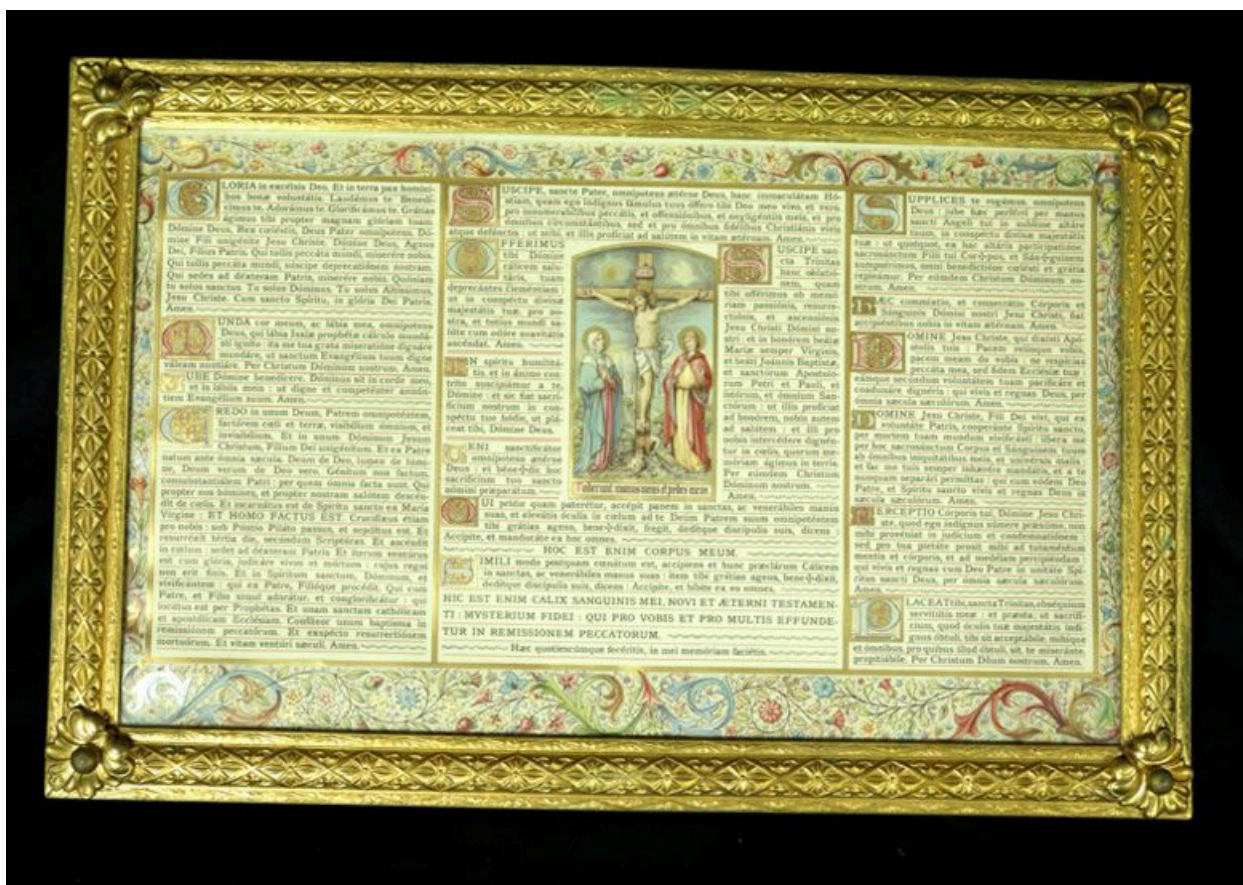 GLORIA in excélsis Deo. Et in terra pax homíni-
bus bonæ voluntátis. Laudámus te. Benedí-
cimus te. Adorámus te. Glorificámus te. Grátias
ágimus tibi propter magnam glóriam tuam.
Dómine Deus, Rex cœléstis, Deus Pater omnípotens. Dó-
mine Fili unigénite Jesu Christe. Dómine Deus, Agnus
Dei, Fílius Patris. Qui tollis peccáta mundi, miserére nobis.
Qui tollis peccáta mundi, súscipe deprecatiónem nostram.
Qui sedes ad déxteram Patris, miserére nobis. Quóniam
tu solus sanctus. Tu solus Dóminus. Tu solus Altíssimus,
Jesu Christe. Cum sancto Spíritu, in glória Dei Patris.
Amen.
MUNDA cor meum, ac lábia mea, omnípotens
Deus, qui lábia Isaíæ prophétæ cálculo mundá-
sti igníto : ita me tua grata miseratióne dignáre
mundáre, ut sanctum Evangélium tuum digne
váleam nuntiáre. Per Christum Dóminum nostrum. Amen.
JUBE Dómine benedícere. Dóminus sit in corde meo,
et in lábiis meis : ut digne et competénter annún-
tiem Evangélium suum. Amen.
CREDO in unum Deum, Patrem omnipoténtem,
factórem cœli et terræ, visibílium ómnium, et
invisibílium. Et in unum Dóminum Jesum
Christum, Fílium Dei unigénitum. Et ex Patre
natum ante ómnia sæcula. Deum de Deo, lumen de lúmi-
ne, Deum verum de Deo vero. Génitum non factum,
consubstantiálem Patri : per quem ómnia facta sunt. Qui
propter nos hómines, et propter nostram salútem descén-
dit de cœlis. Et incarnátus est de Spíritu sancto ex María
Vírgine : ET HOMO FACTUS EST. Crucifíxus étiam
pro nobis : sub Póntio Piláto passus, et sepúltus est. Et
resurréxit tértia die, secúndum Scriptúras. Et ascéndit
in cœlum : sedet ad déxteram Patris. Et íterum ventúrus
est cum glória, judicáre vivos et mórtuos : cujus regni
non erit finis. Et in Spíritum sanctum, Dóminum, et
vivificántem : qui ex Patre, Filióque procédit. Qui cum
Patre, et Fílio simul adorátur, et conglorificátur : qui
locútus est per Prophétas. Et unam sanctam cathólicam
et apostólicam Ecclésiam. Confíteor unum baptísma in
remissiónem peccatórum. Et exspécto resurrectiónem
mortuórum. Et vitam ventúri sæculi. Amen.
SUSCIPE, sancte Pater, omnípotens ætérne Deus, hanc immaculátam Hó-
stiam, quam ego indígnus fámulus tuus óffero tibi Deo meo vivo, et vero,
pro innumerabílibus peccátis, et offensiónibus, et negligéntiis meis, et pro
ómnibus circumstántibus, sed et pro ómnibus fidélibus Christiánis vivis
atque defúnctis : ut mihi, et illis profíciat ad salútem in vitam ætérnam. Amen.
OFFERIMUS
tibi Dómine
cálicem salu-
táris, tuam
deprecántes cleméntiam :
ut in conspéctu divínæ
majestátis tuæ, pro no-
stra, et totíus mundi sa-
lúte cum odóre suavitátis
ascéndat. Amen.
IN spíritu humilitá-
tis, et in ánimo con-
tríto suscipiámur a te,
Dómine : et sic fiat sacri-
fícium nostrum in con-
spéctu tuo hódie, ut plá-
ceat tibi, Dómine Deus.
VENI sanctificátor
omnípotens ætérne
Deus : et béne✠dic hoc
sacrifícium tuo sancto
nómini præparátum.
SUSCIPE san-
cta Trínitas
hanc oblatió-
nem, quam
tibi offérimus ob memó-
riam passiónis, resurre-
ctiónis, et ascensiónis
Jesu Christi Dómini no-
stri : et in honórem beátæ
Maríæ semper Vírginis,
et beáti Joánnis Baptístæ,
et sanctórum Apostoló-
rum Petri et Pauli, et
istórum, et ómnium San-
ctórum : ut illis profíciat
ad honórem, nobis autem
ad salútem : et illi pro
nobis intercédere dignén-
tur in cœlis, quorum me-
móriam ágimus in terris.
Per eúmdem Christum
Dóminum nostrum.
Amen.
Foderunt manus meas et pedes meos
QUI prídie quam paterétur, accépit panem in sanctas, ac venerábiles manus
suas, et elevátis óculis in cœlum ad te Deum Patrem suum omnipoténtem
tibi grátias agens, bene✠díxit, fregit, dedítque discípulis suis, dicens :
Accípite, et manducáte ex hoc omnes.
HOC EST ENIM CORPUS MEUM.
SIMILI modo postquam cœnátum est, accípiens et hunc præclárum Cálicem
in sanctas, ac venerábiles manus suas : item tibi grátias agens, bene✠díxit,
dedítque discípulis suis, dicens : Accípite, et bíbite ex eo omnes.
HIC EST ENIM CALIX SANGUINIS MEI, NOVI ET ÆTERNI TESTAMEN-
TI : MYSTERIUM FIDEI : QUI PRO VOBIS ET PRO MULTIS EFFUNDE-
TUR IN REMISSIONEM PECCATORUM.
Hæc quotiescúmque fecéritis, in mei memóriam faciétis.
SUPPLICES te rogámus omnípotens
Deus : jube hæc perférri per manus
sancti Angeli tui in sublíme altáre
tuum, in conspéctu divínæ majestátis
tuæ : ut quotquot, ex hac altáris participatióne,
sacrosánctum Fílii tui Cor✠pus, et Sán✠guinem
sumpsérimus, omni benedictióne cœlésti et grátia
repleámur. Per eúmdem Christum Dóminum no-
strum. Amen.
HÆC commíxtio, et consecrátio Córporis et
Sánguinis Dómini nostri Jesu Christi, fiat
accipiéntibus nobis in vitam ætérnam. Amen.
DOMINE Jesu Christe, qui dixísti Apó-
stolis tuis : Pacem relínquo vobis,
pacem meam do vobis : ne respícias
peccáta mea, sed fidem Ecclésiæ tuæ :
eámque secúndum voluntátem tuam pacificáre et
coadunáre dignéris : qui vivis et regnas Deus, per
ómnia sæcula sæculórum. Amen.
DOMINE Jesu Christe, Fili Dei vivi, qui ex
voluntáte Patris, cooperánte Spíritu sancto,
per mortem tuam mundum vivificásti : líbera me
per hoc sacrosánctum Corpus et Sánguinem tuum
ab ómnibus iniquitátibus meis, et univérsis malis :
et fac me tuis semper inhærére mandátis, et a te
nunquam separári permíttas : qui cum eódem Deo
Patre, et Spíritu sancto vivis et regnas Deus in
sæcula sæculórum. Amen.
PERCEPTIO Córporis tui, Dómine Jesu Chri-
ste, quod ego indígnus súmere præsúmo, non
mihi provéniat in judícium et condemnatiónem :
sed pro tua pietáte prosit mihi ad tutaméntum
mentis et córporis, et ad medélam percipiéndam :
qui vivis et regnas cum Deo Patre in unitáte Spí-
ritus sancti Deus, per ómnia sæcula sæculórum.
Amen.
PLACEAT tibi, sancta Trínitas, obséquium
servitútis meæ : et præsta, ut sacrifí-
cium, quod óculis tuæ majestátis indí-
gnus óbtuli, tibi sit acceptábile, mihíque
et ómnibus, pro quibus illud óbtuli, sit, te miseránte,
propitiábile. Per Christum Dñum nostrum. Amen.